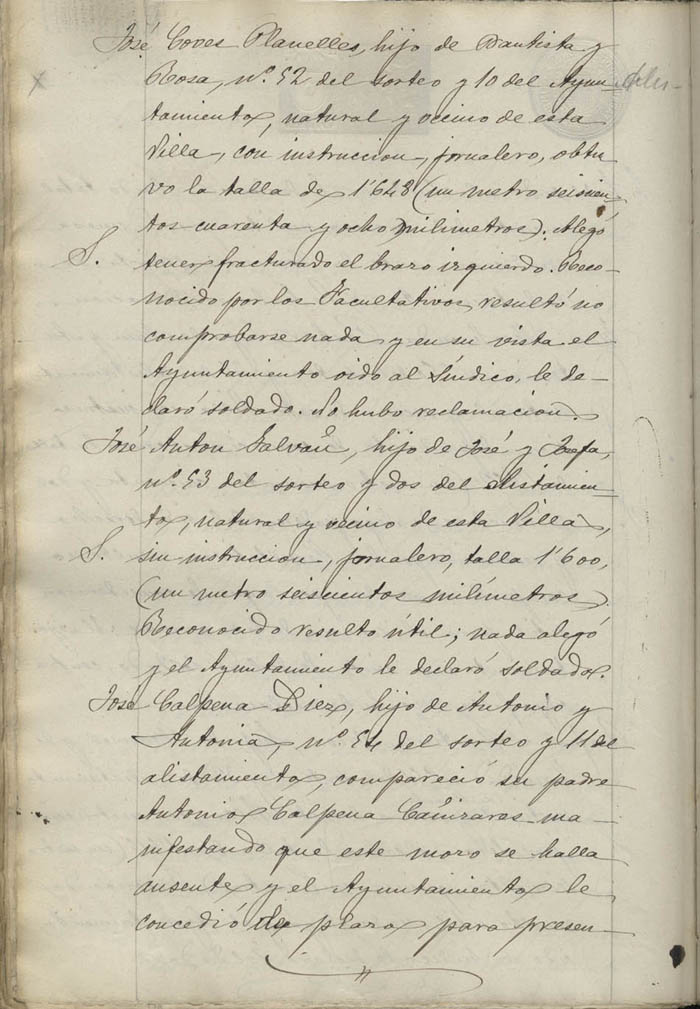 José Coves Planelles, hijo de Bautista y
Rosa, nº. 52 del sorteo y 10 del Ayun-
tamiento, natural y vecino de esta
Villa, con instruccion, jornalero, obtu-
vo la talla de 1'648 (un metro seiscien-
tos cuarenta y ocho milimetros). Alegó
S. tener fracturado el brazo izquierdo. Reco-
nocido por los Facultativos, resultó no
comprobarse nada y en su vista el
Ayuntamiento oido al Síndico, le de-
claró soldado. No hubo reclamacion.
José Anton Galvañ, hijo de José y Josefa,
nº. 53 del sorteo y dos del alistamien-
to, natural y vecino de esta Villa,
S. sin instruccion, jornalero, talla 1'600,
(un metro seiscientos milímetros).
Reconocido resultó útil; nada alegó
y el Ayuntamiento le declaró soldado.
José Calpena Diez, hijo de Antonio y
Antonia, nº. 54 del sorteo y 11 del
alistamiento, compareció su padre
Antonio Calpena Cañizares ma-
nifestando que este mozo se halla
ausente y el Ayuntamiento le
concedió de plazo para presen-